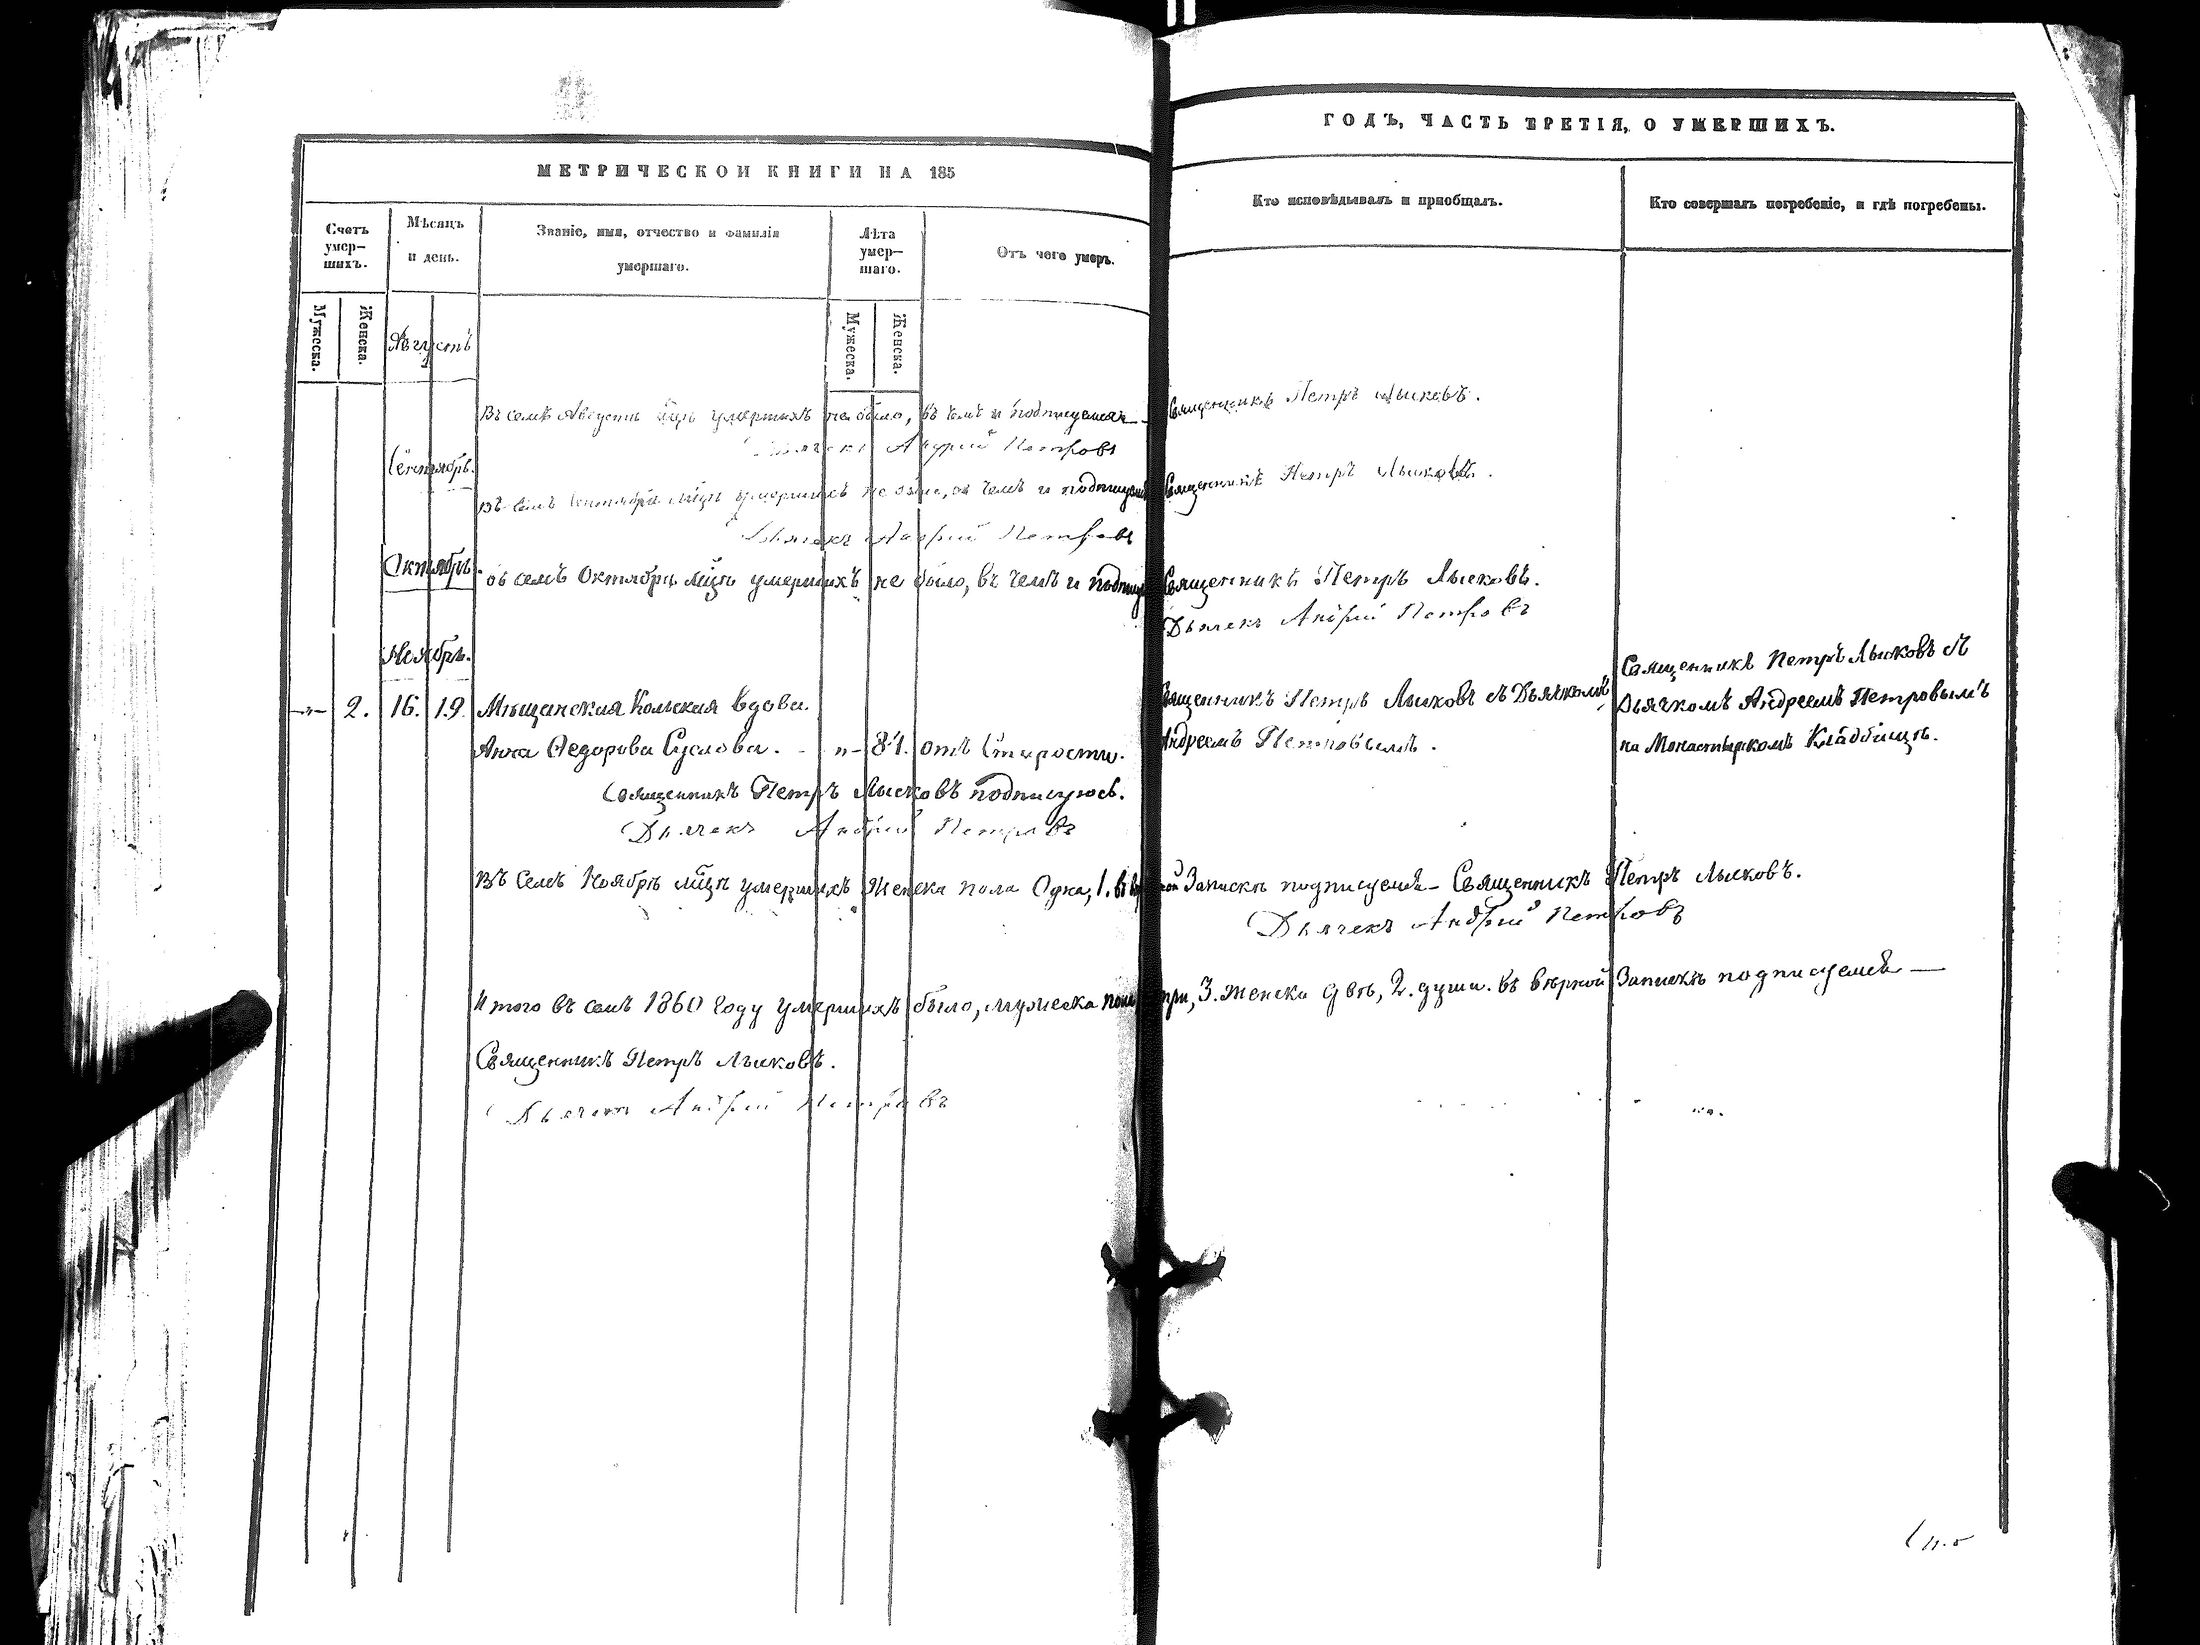 МЕТРИЧЕСКОИ КНИГИ НА 185
ГОДЪ, ЧАСТЬ ТРЕТІЯ, О УМЕРШИХЪ.
Счетъ умер-шихъ.
Мужеска.
Женска.
Мѣсяцъ и день.
Званіе, имя, отчество и фамилія умершаго.
Лѣта умер-шаго.
Мужеска.
Женска.
Отъ чего умеръ.
Кто исповѣдывалъ и пріобщалъ.
Кто совершалъ погребеніе, и гдѣ погребены.
Августъ
Въ семъ Августѣ мцѣ умершихъ не было, въ чемъ и подписуемся – Священникъ Петръ Лысковъ.
Дьячекъ Андрій Петровъ
Сентябрь.
Въ семъ Сентябрѣ мцѣ умершихъ не было, въ чемъ и подписуемся Священникъ Петръ Лысковъ.
Дьячекъ Андрій Петровъ
Октябрь.
Въ семъ Октябрѣ мцѣ умершихъ не было, въ чемъ и Священникъ Петръ Лысковъ.
Дьячекъ Андрій Петровъ
Ноябрь.
–"– 2. 16. 19. Мѣщанская Кольская вдова Анна Ѳедорова Суслова. – "– 81. отъ Старости.
Священникъ Петръ Лысковъ съ Дьячкомъ
Андреемъ Петровымъ.
Священникъ Петръ Лысковъ съ
Дьячкомъ Андреемъ Петровымъ
на Монастырскомъ Кладбищѣ.
Священникъ Петръ Лысковъ подписуюсь.
Дьячекъ Андрій Петровъ
Въ Семъ Ноябрѣ мцѣ умершихъ Женска пола Одна, 1. въ Запискѣ подписуемся – Священникъ Петръ Лысковъ.
Дьячекъ Андрій Петровъ
Итого въ семъ 1860 году умершихъ было, мужеска пола три, 3. Женска двѣ, 2. души. въ вѣрной Запискѣ подписуемся —
Священникъ Петръ Лысковъ.
Дьячекъ Андрій Петровъ